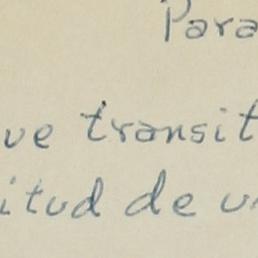 Para
ue transit
itud de u